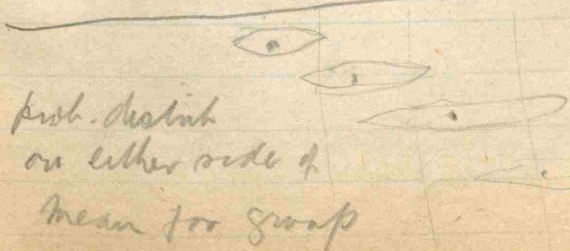 prob. distrib
on either side of
mean for group